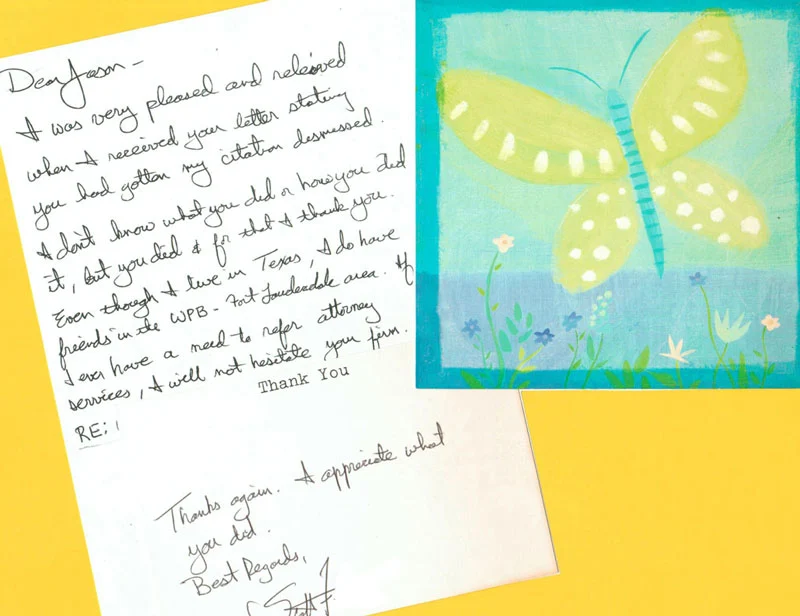 Dear Jason -
I was very pleased and releived
when I received your letter stating
you had gotten my citation dismissed.
I don't know what you did or how you did
it, but you did & for that I thank you.
Even though I live in Texas, I do have
friends in the WPB - Fort Lauderdale area. If
I ever have a need to refer attorney
services, I will not hesitate your firm.
Thank You
RE:
Thanks again. I appreciate what
you did.
Best Regards,
Scott F.